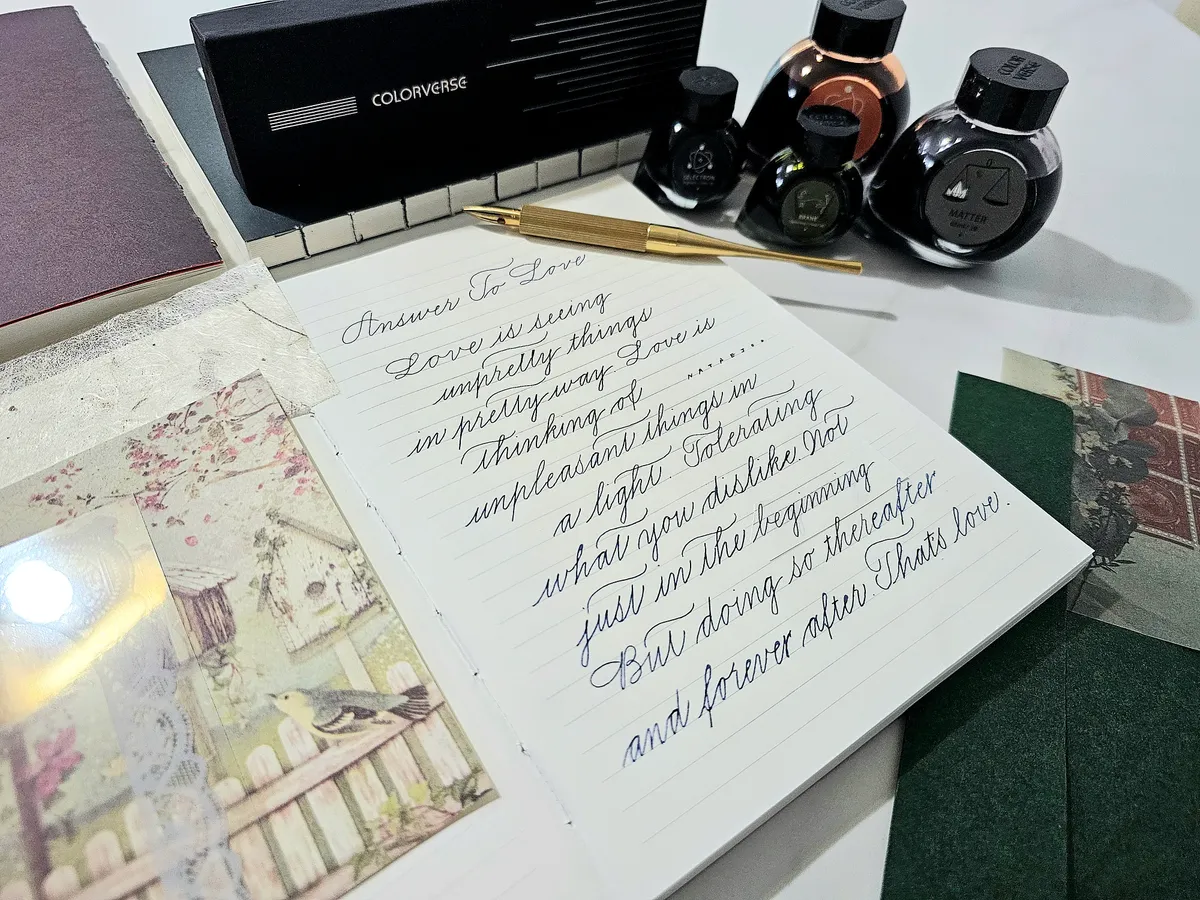 COLORVERSE
SELECTRON
COLOR
VERSE
MATTER
Answer To Love
Love is seeing
unpretty things
in pretty way. Love is
thinking of
unpleasant things in
a light. Tolerating
what you dislike. Not
just in the beginning
But doing so thereafter
and forever after. Thats love.